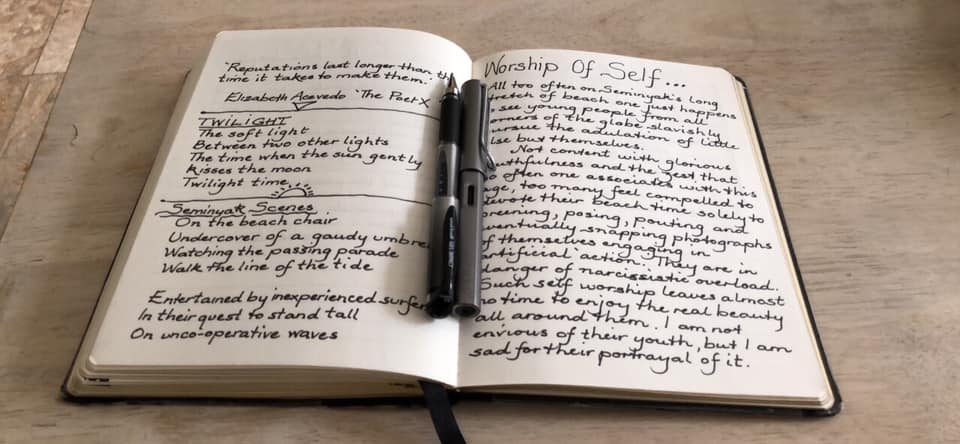 'Reputations last longer than th
time it takes to make them.'
Elizabeth Acevedo 'The Poet X
TWILIGHT
The soft light
Between two other lights
The time when the sun gently
Kisses the moon
Twilight time...
Seminyak Scenes
On the beach chair
Undercover of a gaudy umbre
Watching the passing parade
Walk the line of the tide
Entertained by inexperienced surfer
In their quest to stand tall
On unco-operative waves
Worship Of Self...
All too often on Seminyak's long
tretch of beach one just happens
o see young people from all
orners of the globe slavishly
ursue the adulation of little
lse but themselves.
Not content with glorious
uthfulness and the zest that
o often one associates with this
ge, too many feel compelled to
evote their beach time solely to
reening, posing, pouting and
ventually snapping photographs
f themselves engaging in
artificial 'action'. They are in
danger of narcissistic overload.
Such self worship leaves almost
no time to enjoy the real beauty
all around them. I am not
envious of their youth, but I am
sad for their portrayal of it.